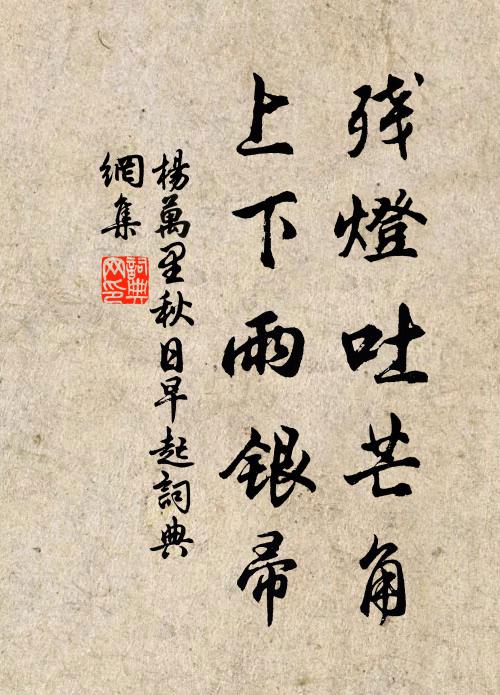 残燈吐芒角
上下兩銀帚
楊萬里秋日早起詞典
網集
詞典
网印